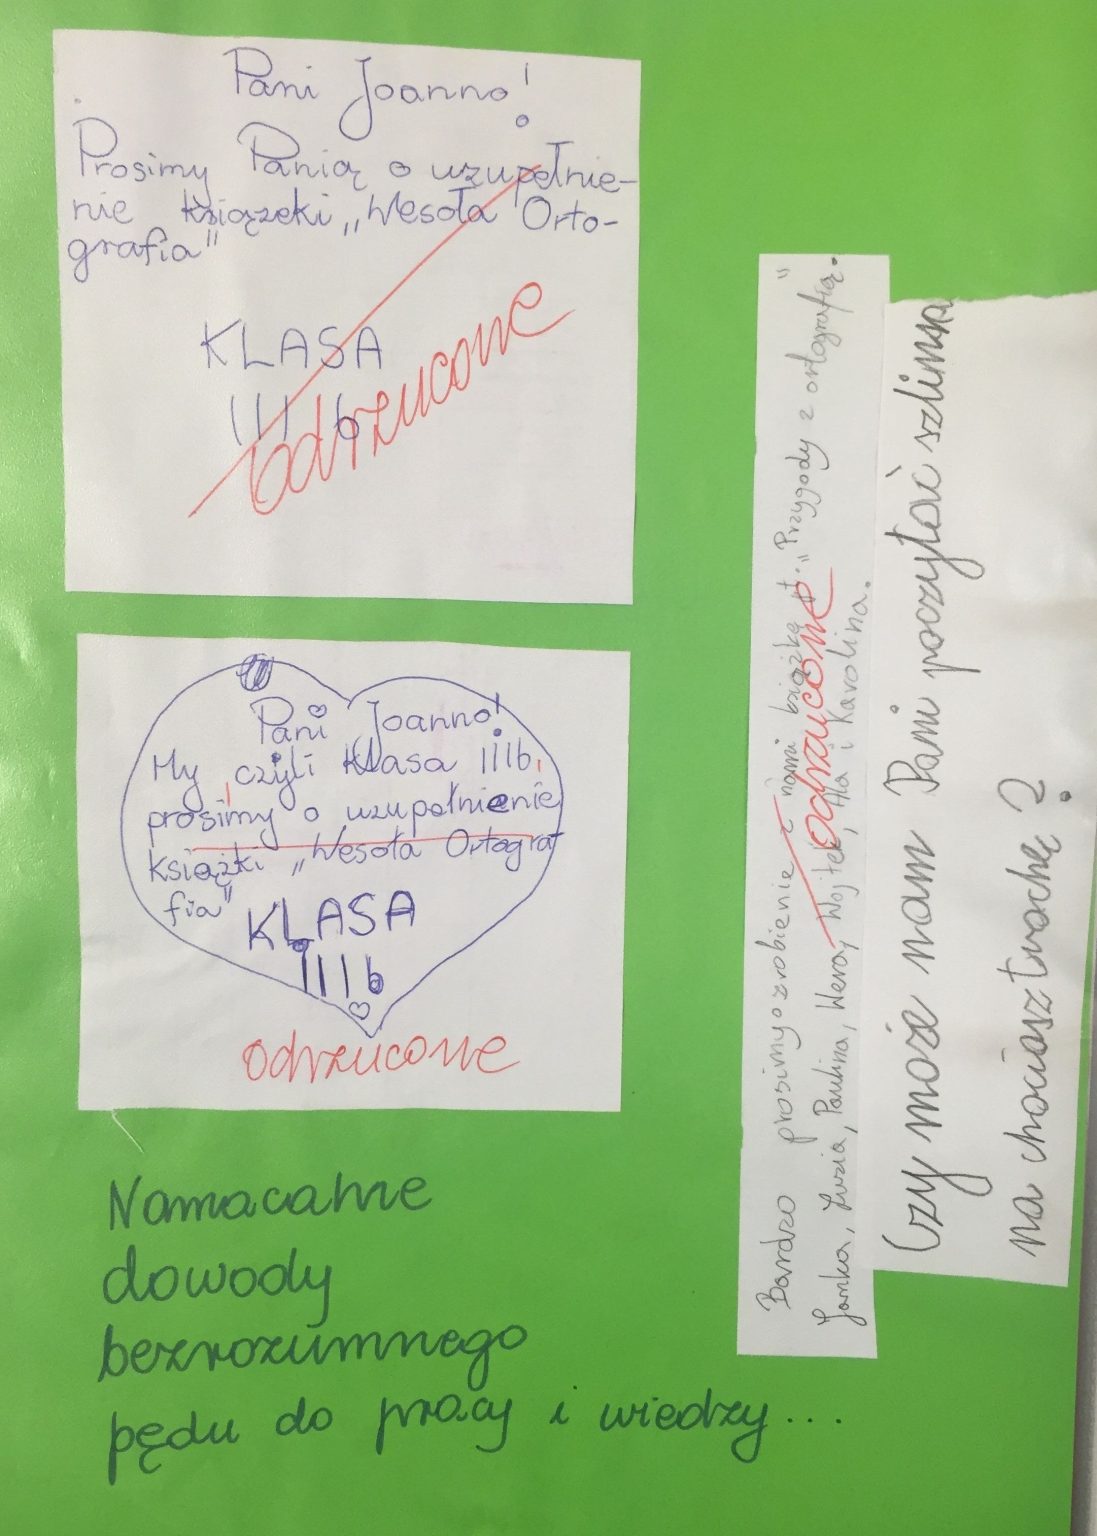 Pani Joanno!
Prosimy Panią o uzupełnie-
nie książeki „Wesoła Orto-
grafia"
KLASA
III b
odrzucone
Pani Joanno!
My, czyli Klasa IIIb,
prosimy o uzupełnienie
książki „Wesoła Ortogra
fia"
KLASA
IIIb
odrzucone
Bardzo prosimy o zrobienie z nami książkę pt. „Przygody z ortografią".
Janka, Zuzia, Paulina, Wera, Wojtek, Ala i Karolina.
odrzucone
Czy może nam Pani poczytać szlimaka
na chociasz trochę?
Namacalne
dowody
bezrozumnego
pędu do pracy i wiedzy...